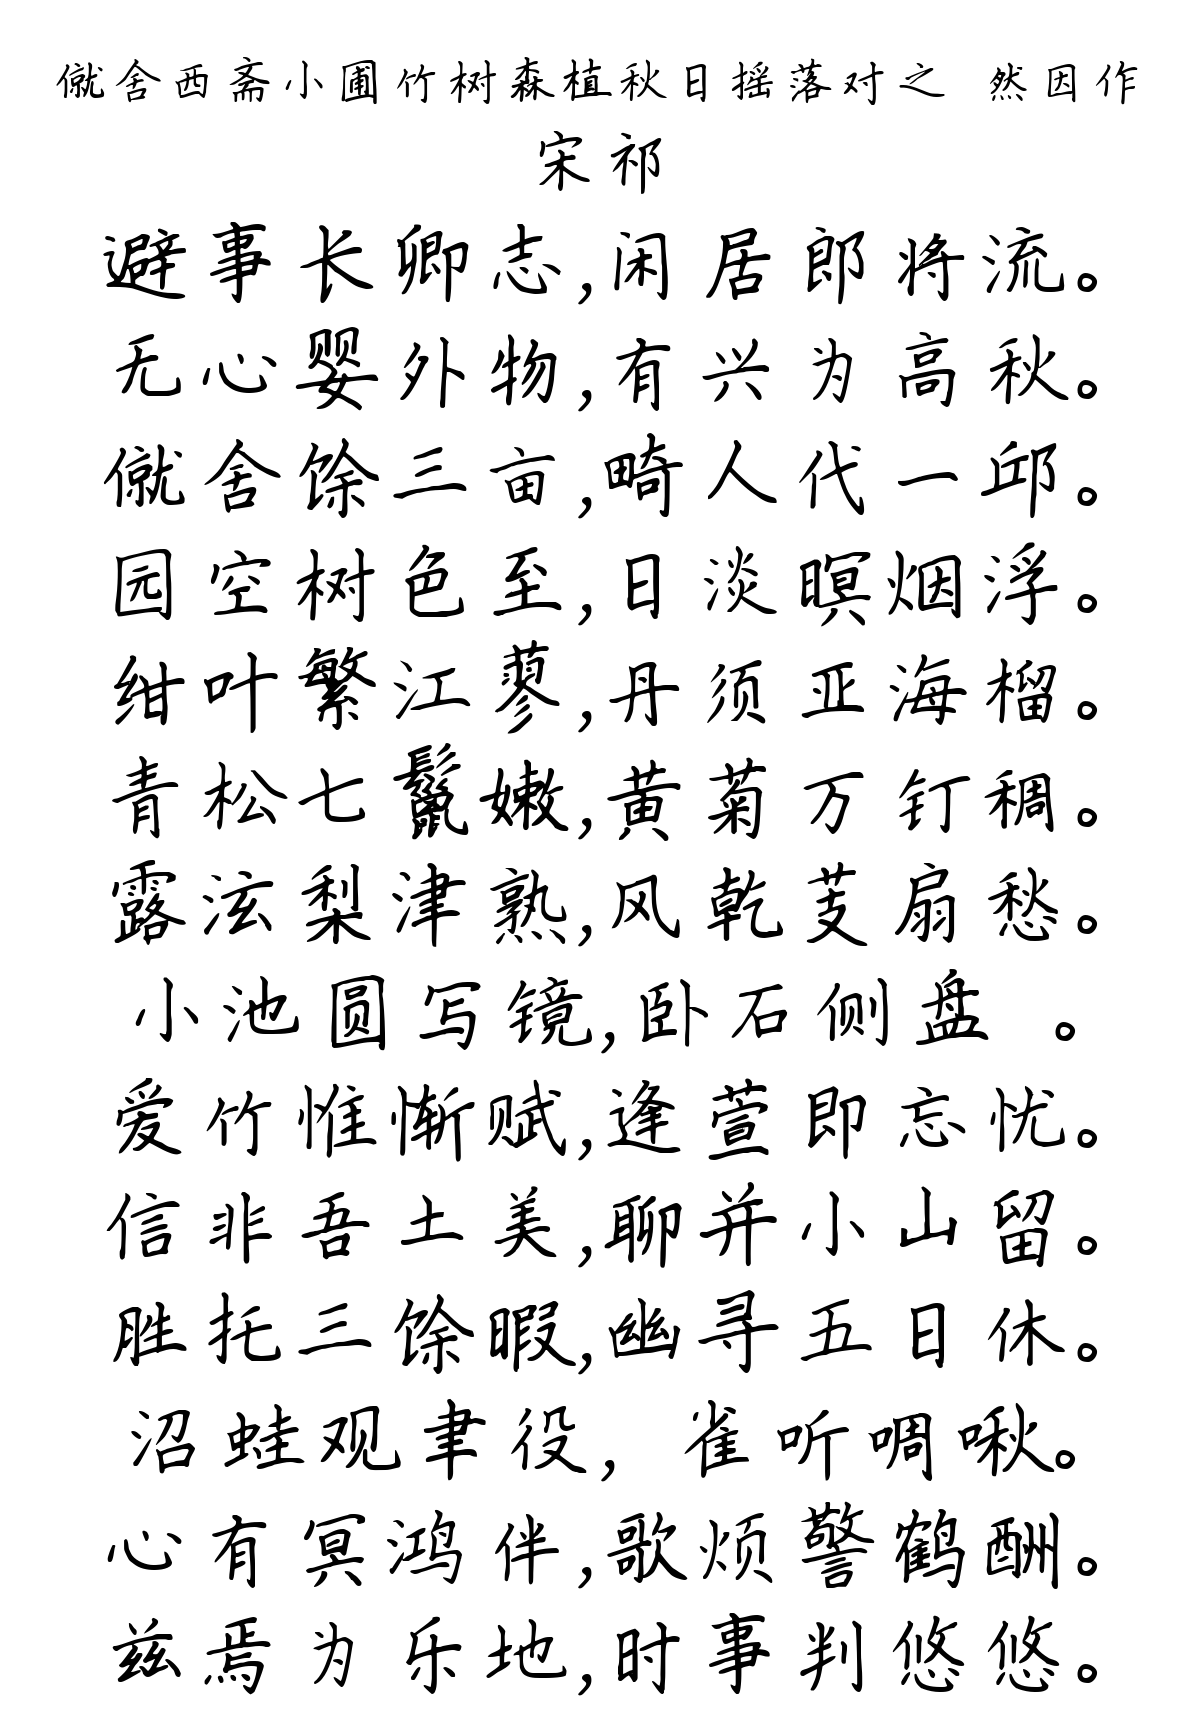 僦舍西斋小圃竹树森植秋日摇落对之 然因作
宋祁
避事长卿志,闲居郎将流。
无心婴外物,有兴为高秋。
僦舍馀三亩,畸人代一邱。
园空树色至,日淡暝烟浮。
绀叶繁江蓼,丹须亚海榴。
青松七鬣嫩,黄菊万钉稠。
露泫梨津熟,风乾芰扇愁。
小池圆写镜,卧石侧盘 。
爱竹惟惭赋,逢萱即忘忧。
信非吾土美,聊并小山留。
胜托三馀暇,幽寻五日休。
沼蛙观聿役, 雀听啁啾。
心有冥鸿伴,歌烦警鹤酬。
兹焉为乐地,时事判悠悠。